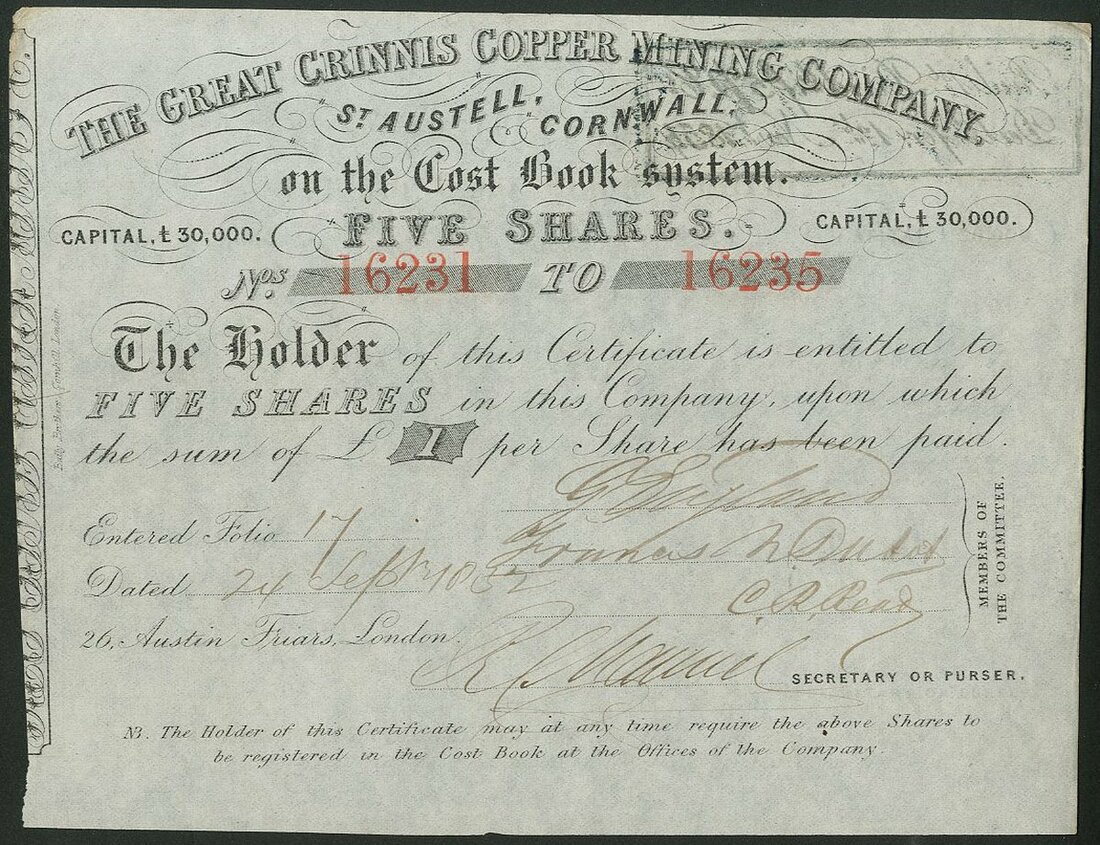 THE GREAT CRINNIS COPPER MINING COMPANY,
ST AUSTELL, CORNWALL,
on the Cost Book system.
CAPITAL, £30,000. FIVE SHARES. CAPITAL, £30,000.
Nos. 16231 TO 16235
The Holder of this Certificate is entitled to
FIVE SHARES in this Company, upon which
the sum of £ 1 per Share has been paid.
Entered Folio 17
Francis
Dated 24 Sept 1852
C. R. Read
MEMBERS OF
THE COMMITTEE.
26, Austin Friars, London.
SECRETARY OR PURSER.
NB. The Holder of this Certificate may at any time require the above Shares to
be registered in the Cost Book at the Offices of the Company.